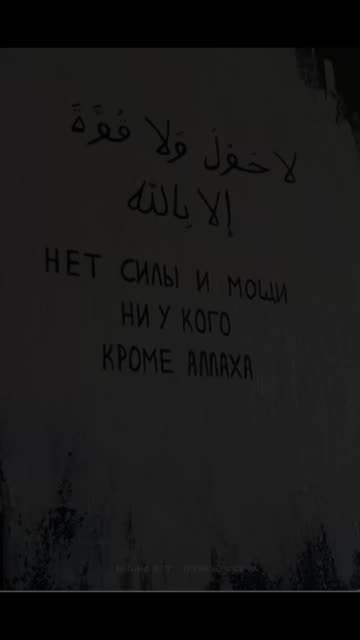 لا حَولَ وَلا قُوَّةَ
إلا بِالله
НЕТ СИЛЫ И МОЩИ
НИ У КОГО
КРОМЕ АЛЛАХА